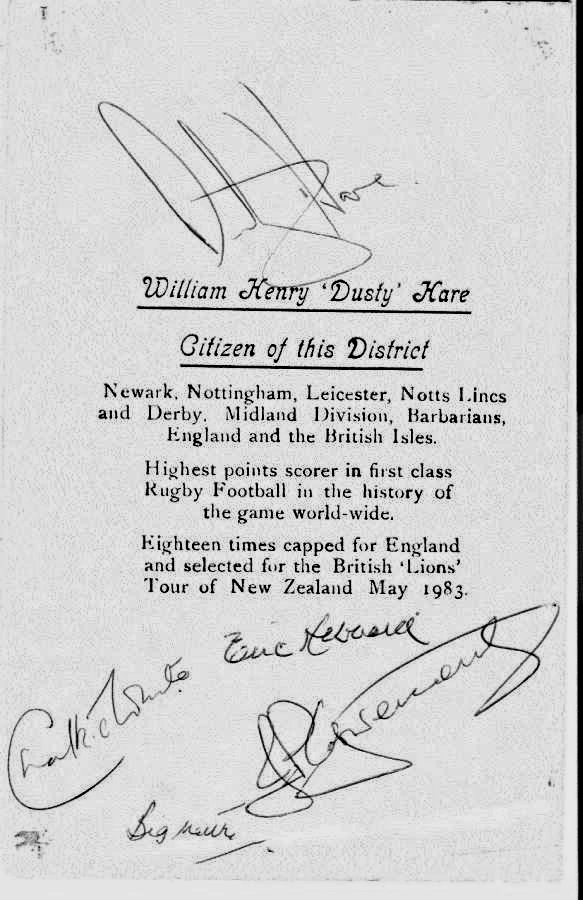 Dusty Hare
William Henry ‘Dusty’ Hare
Citizen of this District
Newark, Nottingham, Leicester, Notts Lincs
and Derby, Midland Division, Barbarians,
England and the British Isles.
Highest points scorer in first class
Rugby Football in the history of
the game world-wide.
Eighteen times capped for England
and selected for the British ‘Lions’
Tour of New Zealand May 1983.
Chalkie White